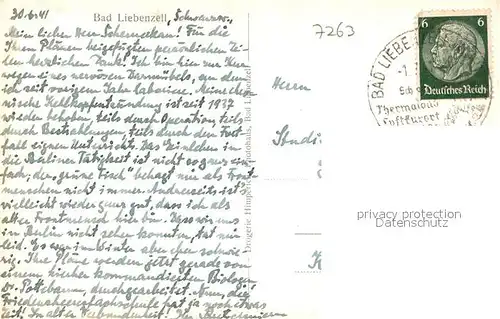 30.6.41
Bad Liebenzell, Schwarzw.
Mein lieber Herr Schermerhan! Für die
Ihren Plänen beigefügten persönlichen Zei-
len herzlichen Dank! Ich bin hier zur Kur
wegen eines nervösen Darmübels, an dem
ich seit vorigem Jahr laboriere. Meine chro-
nische Kehlkopfentzündung ist seit 1937
wieder behoben, teils durch Operation teils
durch Bestrahlungen, teils durch den Fort-
fall eignen Unterrichts. Das Einleben in
die Berliner Tätigkeit ist nicht so ganz ein-
fach; der "grüne Tisch" behagt mir als Front-
menschen nicht immer. Andrerseits ist's
vielleicht wieder ganz gut, dass ich als
alter Frontmensch hier bin. Dass wir uns
in Berlin nicht sehen konnten, tat mir
leid. Es war im Winter aber eher schwie-
rig. Ihre Pläne werden jetzt gerade von
einem hierher kommandierten Biologen
Dr. Pottbaum, durchgearbeitet. Nun, die
Friedensheeresfachschule hat ja noch etwas
Zeit! In alter Verbundenheit! Ihr
Drogerie Himperich, Photohaus, Bad Liebenzell
7263
Herrn
Studi
K
BAD LIEBE
-1.
Thermalbad
Luftkurort
6 6
Deutsches Reich
privacy protection
Datenschutz